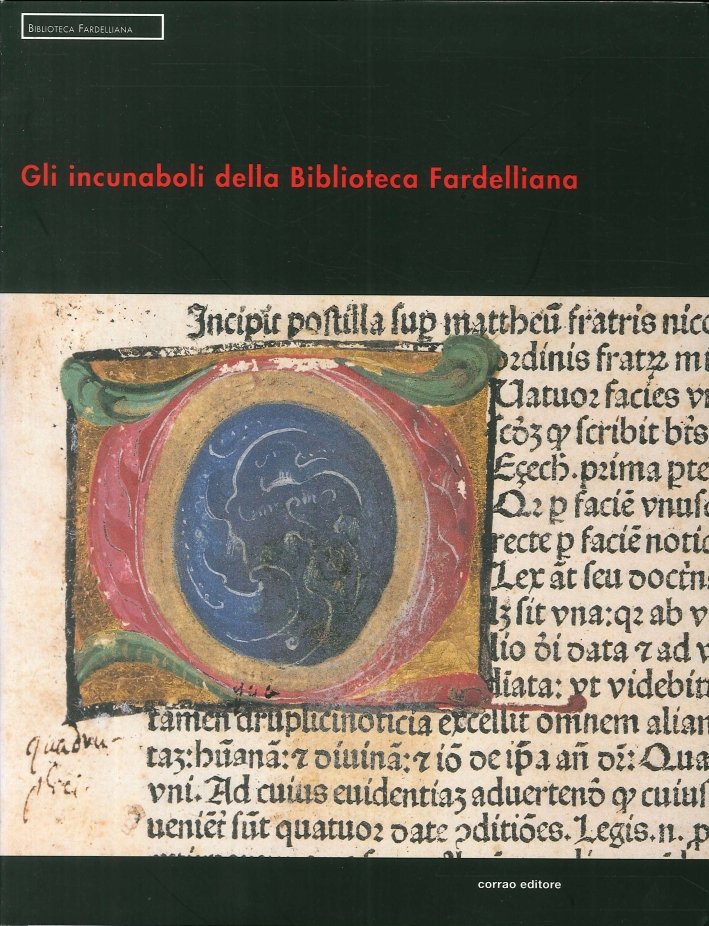 BIBLIOTECA FARDELLIANA
Gli incunaboli della Biblioteca Fardelliana
Incipit postilla sup̲ mattheū fratris nico
ordinis fratrꝝ mi
Uatuor facies vn
scōꝫ qͥ scribit bt̄s
Eçech̄. prima ꝑte
Qꝛ ꝑ faciē vnusc
recte ꝑ faciē notic
Lex āt seu doctn̄
lꝫ sit vna: qꝛ ab v
lio ōi data ⁊ ad v
diata: vt videbit
tamen druplici noticia excellit omnem alian
taꝫ: hūanā: ⁊ diuinā: ⁊ iō de ip̄a an̄ dr̄: Qua
vni. Ad cuius euidentiaꝫ aduertendō qͥ cuius
ueniēt sūt quatuor date ↄditiōes. Legis. n. p
quadru-
plici.
corrao editore